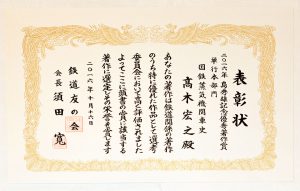 表彰状
二〇一六年島秀雄記念優秀著作賞
単行本部門
国鉄蒸気機関車史
髙木宏之殿
あなたの著作は鉄道関係の著作
のうち特に優れた作品として選考
委員会において高く評価されました
よってここに頭書の賞に該当する
著作に選定しその栄誉を表します
二〇一六年十月十六日
鉄道友の会
会長 須田 寬